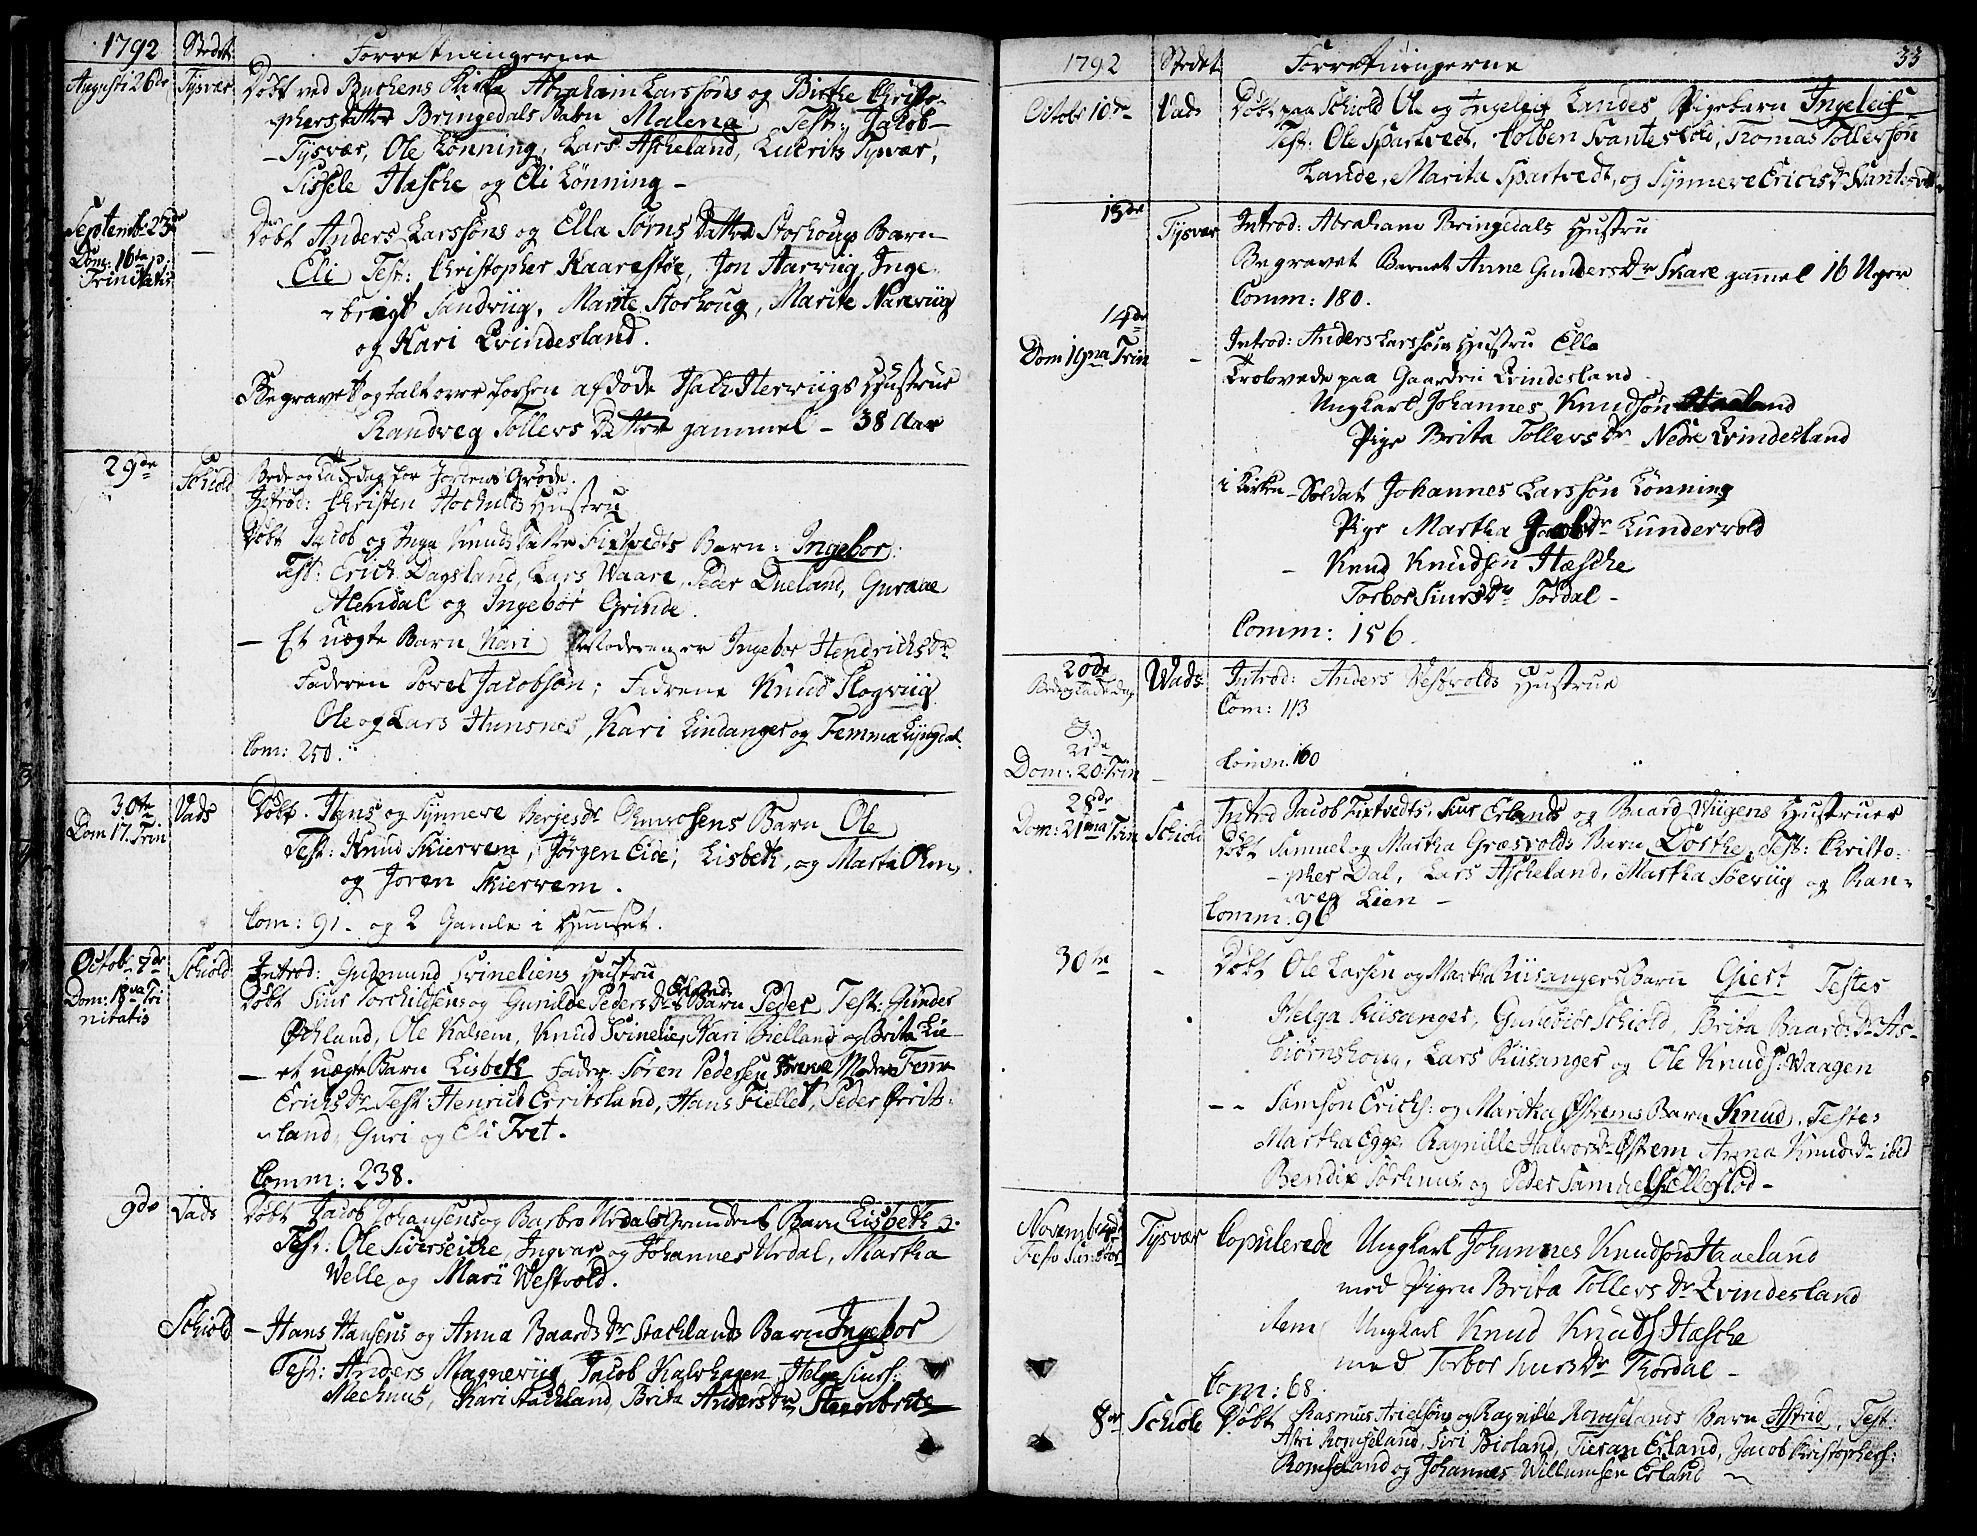 1792 Stedet Forretningerne
Augusti 26de Tysvær Døbt ved Buchens Kirke Abraham Larssøns og Birthe Christo-
phersdatter Bringedals Barn Malena, Test: Jakob
Tysvær, Ole Lønning, Lars Ascheland, Tysvær,
Sissele Hæsche og Eli Lønning -
Septemb: 23de Døbt Anders Larssøns og Ella Sørns Datter Storhoug Barn
Dom: 16ta p. Trinitatis
Eli Test: Christopher Kaarestøe, Jon Aarviig, Inge-
brigt Sandviig, Marite Storhoug, Marite Nareviig
og Kari Qvindesland.
Begravet og talt over forhen afdøde Isach Herviigs Hustrue
Randveg Tollers Datter gammel - 38 Aar
29de Schiold Bede og Takkedag for Jordens Grøde.
Introd: Christen Hochulds Hustru
Døbt Jacob og Inga Knuds Datter Fixtvedts Barn: Ingebor:
Test: Erich Dagsland, Lars Waare, Peder Dueland, Guraae
Alendal og Ingebor Grinde.
- Et uægte Barn Kari Moderen er Ingebor Hendrichs Dr
Faderen Povel Jacobsøn; Fadrene Knud Slogviig
Ole og Lars Hunsnes, Kari Lindanger og Femma Lyngdal
Com: 250.
30te Vads Døbt. Hans og Synneve Berjesdr Barn Ole
Dom 17. Trin
Test: Knud Skierrem, Jørgen Eide, Lisbeth, og Marta Ohm
og Joren Skierrem.
Com: 91 - og 2 Gamle i Huuset.
Octob: 7de Schiold Introd: Gudmund Svineliens Hustru
Dom: 18va Trinitatis
Døbt Siur Torchildsens og Gunilde Peders Dr Erland: Barn Peder Test: Gunder
Øchland, Ole Kalsem, Knud Svinelie, Kari Bielland og Brita Lie
- et uægte Barn Lisbeth Fader Søren Pedersen Moder Temme
Erichs Dr Test: Henrich Erritsland, Hans Fiellet, Peder Errits-
land, Guri og Eli Tvet.
Comm: 238.
9de Vads Døbt Jacob Johansens og Barbro Urdals Barn Lisbeth
Test: Ole Siverseithe, Ingvar og Johannes Urdal, Martha
Velle og Mari Westvold.
Schiold - Hans Hansens og Anna Baards Dr Stachlands Barn Ingebor
Test: Anders Magneviig, Jacob Kalvhagen, Helge Siurs:
Mechnus, Kari Stachland, Brita Anders Dr
1792 Stedet Forretningerne 33
Octobr 10de Vads Døbt paa Schiold Ole og Ingeleif Landes Pigebarn Ingeleif
Test: Ole Spartvedt, Torben Svantesvold, Thomas Tollersøn
Lande, Marite Spartvedt, og Synneve Erichs Dr
13de Tysvær Introd: Abraham Bringedals Hustru
Begravet Barnet Anne Gunders Dr Skare gammel 16 Uger
Comm: 180.
14de Introd: Anders Larssøns Hustru Ella
Dom 19na Trin - Trolovede paa Gaarden Qvindesland
Ungkarl Johannes Knudsøn Haaeland
Pige Brita Tollers Dr Nedre Qvindesland
i Kirken - Soldat Johannes Larssøn Lønning
Pige Martha Jacobdr Lundervold
- Knud Knudsen Hæsche
Torbor Siurs Dr Tordal -
Comm: 156.
20de Wads Introd: Anders Westvolds Hustrue
Bede og Takkedag
Com: 113
og
21de
Dom: 20: Trin - Comm. 160
28de Introd Jacob Fixtvedts, Siur Erlands og Baard Wiigens Hustruer
Dom: 21ma Trin Schiold Døbt Samuel og Martha Græsvolds Barn Dorthe, Test: Christo-
pher Dal, Lars Ascheland, Martha Søeviig og Ran-
veg Lien -
Comm: 96
30te - Døbt Ole Larsen og Martha Kiisangers Barn Giert Testes
Helga Kiisanger, Gundbiør Schiold, Brita Baards Dr As-
biørnshoug, Lars Kiisanger og Ole Knuds: Waagen
- - Samson Erichs: og Maritha Østrems Barn Knud, Testes
Martha Egge, Ragnille Halvors Dr Østrem Anna Knuds Dr ibid
Bendix Sørhuus og Peder Samuels:
Novemb: 1ste Tysvær Copulerede Ungkarl Johannes Knudsøn Haaeland
Festo Sanctor:
med Pigen Brita Tollers Dr Qvindesland
item Ungkarl Knud Knuds: Hæsche
med Torbor Siurs Dr Thordal -
Com: 68.
8de Schiold Døbt Rasmus Arielsøns og Ragnille Romselands Barn Astrid, Test:
Astri Romseland, Siri Bioland, Tieran Erland, Jacob Christophers:
Romseland og Johannes Willumsen Erland